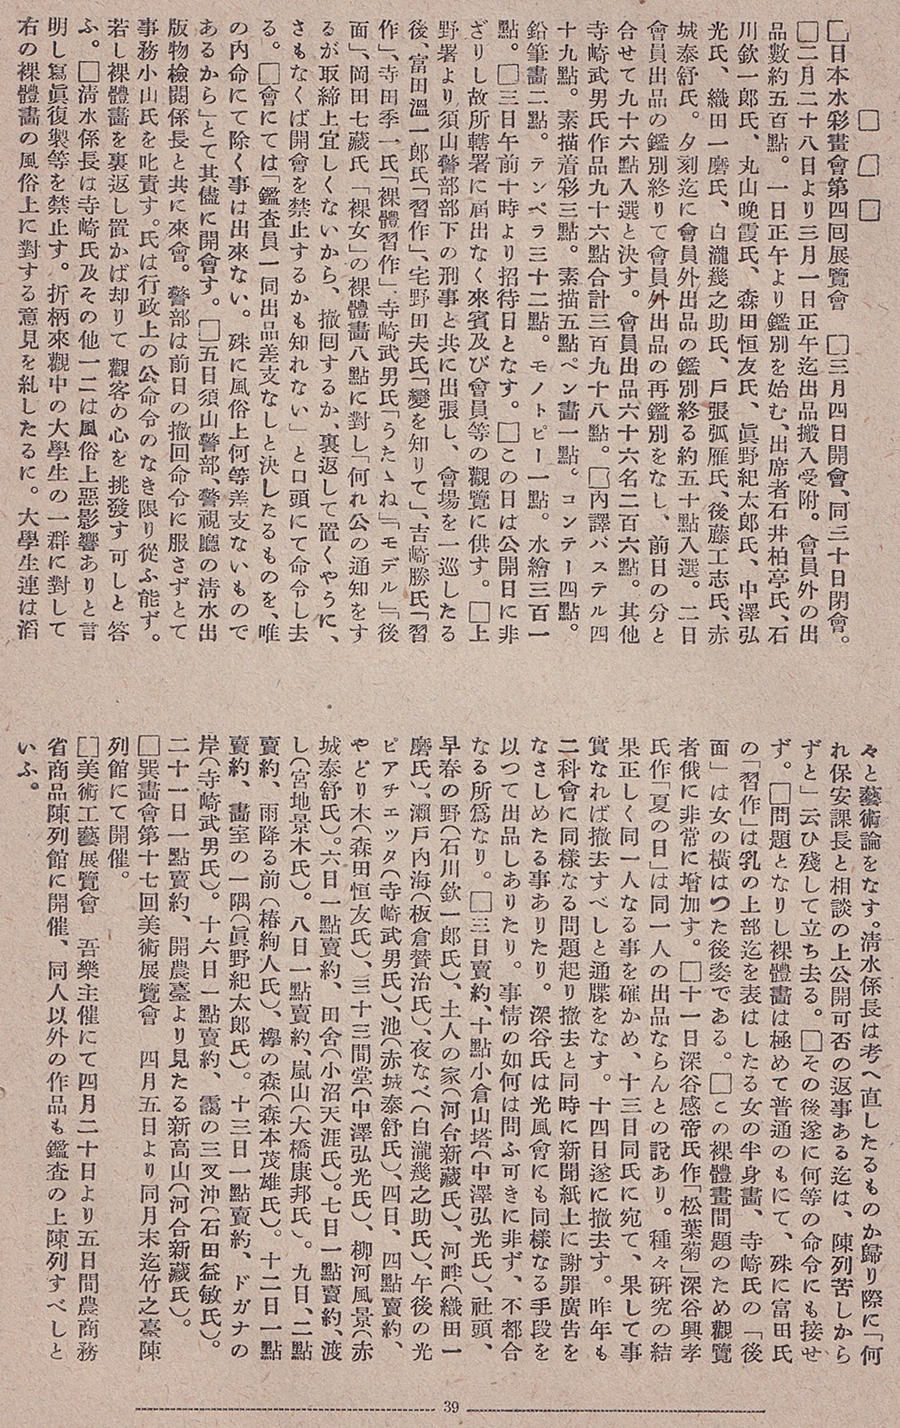 □ □ □
□日本水彩畫會第四回展覽會　□三月四日開會、同三十日閉會。
□二月二十八日より三月一日正午迄出品搬入受附。會員外の出
品數約五百點。一日正午より鑑別を始む、出席者石井柏亭氏、石
川欽一郎氏、丸山晩霞氏、森田恒友氏、眞野紀太郎氏、中澤弘
光氏、織田一磨氏、白瀧幾之助氏、戶張弧雁氏、後藤工志氏、赤
城泰舒氏。夕刻迄に會員外出品の鑑別終る約五十點入選。二日
會員出品の鑑別終りて會員外出品の再鑑別をなし、前日の分と
合せて九十六點入選と決す。會員出品六十六名二百六點。其他
寺崎武男氏作品九十六點合計三百九十八點。□內譯パステル四
十九點。素描着彩三點。素描五點。ペン畫一點。コンテー四點。
鉛筆畫二點。テンペラ三十二點。モノトピー一點。水繪三百一
點。□三日午前十時より招待日となす。□この日は公開日に非
ざりし故所轄署に屆出なく來賓及び會員等の觀覽に供す。□上
野署より須山警部部下の刑事と共に出張し、會場を一巡したる
後、富田溫一郎氏「習作」、宅野田夫氏「變を知りて」、吉崎勝氏「習
作」、寺田季一氏「裸體習作」、寺崎武男氏「うたゝね」「モデル」「後
面」、岡田七藏氏「裸女」の裸體畫八點に對し「何れ公の通知をす
るが取締上宜しくないから、撤回するか、裏返して置くやうに、
さもなくば開會を禁止するかも知れない」と口頭にて命令し去
る。□會にては「鑑査員一同出品差支なしと決したるものを、唯
の內命にて除く事は出來ない。殊に風俗上何等差支ないもので
あるから」とて其儘に開會す。□五日須山警部、警視廳の淸水出
版物檢閱係長と共に來會。警部は前日の撤回命令に服さずとて
事務小山氏を叱責す。氏は行政上の公命令のなき限り從ふ能ず。
若し裸體畫を裏返し置かば却りて觀客の心を挑發す可しと答
ふ。□淸水係長は寺崎氏及その他一二は風俗上惡影響ありと言
明し寫眞復製等を禁止す。折柄來觀中の大學生の一群に對して
右の裸體畫の風俗上に對する意見を糺したるに。大學生連は滔
々と藝術論をなす。淸水係長は考へ直したるものか歸り際に「何
れ保安課長と相談の上公開可否の返事ある迄は、陳列苦しから
ずと」云ひ殘して立ち去る。□その後遂に何等の命令にも接せ
ず。□問題となりし裸體畫は極めて普通のもにて、殊に富田氏
の「習作」は乳の上部迄を表はしたる女の半身畫、寺崎氏の「後
面」は女の橫はつた後姿である。□この裸體畫問題のため觀覽
者俄に非常に增加す。□十一日深谷感帝氏作「松葉菊」深谷興孝
氏作「夏の日」は同一人の出品ならんとの說あり。種々硏究の結
果正しく同一人なる事を確かめ、十三日同氏に宛て、果して事
實なれば撤去すべしと通牒をなす。十四日遂に撤去す。昨年も
二科會に同樣なる問題起り撤去と同時に新聞紙上に謝罪廣告を
なさしめたる事ありたり。深谷氏は光風會にも同樣なる手段を
以つて出品しありたり。事情の如何は問ふ可きに非ず、不都合
なる所爲なり。□三日賣約、十點小倉山塔(中澤弘光氏)、社頭、
早春の野(石川欽一郎氏)、土人の家(河合新藏氏)、河畔(織田一
磨氏)、瀨戶內海(板倉贊治氏)、夜なべ(白瀧幾之助氏)、午後の光
ピアチェッタ(寺崎武男氏)、池(赤城泰舒氏)、四日、四點賣約、
やどり木(森田恒友氏)、三十三間堂(中澤弘光氏)、柳河風景(赤
城泰舒氏)。六日一點賣約、田舍(小沼天涯氏)。七日一點賣約、渡
し(宮地景木氏)。八日一點賣約、嵐山(大橋康邦氏)。九日、二點
賣約、雨降る前(椿絢人氏)、欅の森(森本茂雄氏)。十二日一點
賣約、畫室の一隅(眞野紀太郎氏)。十三日一點賣約、ドガナの
岸(寺崎武男氏)。十六日一點賣約、靄の三叉沖(石田益敏氏)。
二十一日一點賣約、開農臺より見たる新高山(河合新藏氏)。
□巽畫會第十七回美術展覽會　四月五日より同月末迄竹之臺陳
列館にて開催。
□美術工藝展覽會　吾樂主催にて四月二十日より五日間農商務
省商品陳列館に開催、同人以外の作品も鑑査の上陳列すべしと
いふ。
39